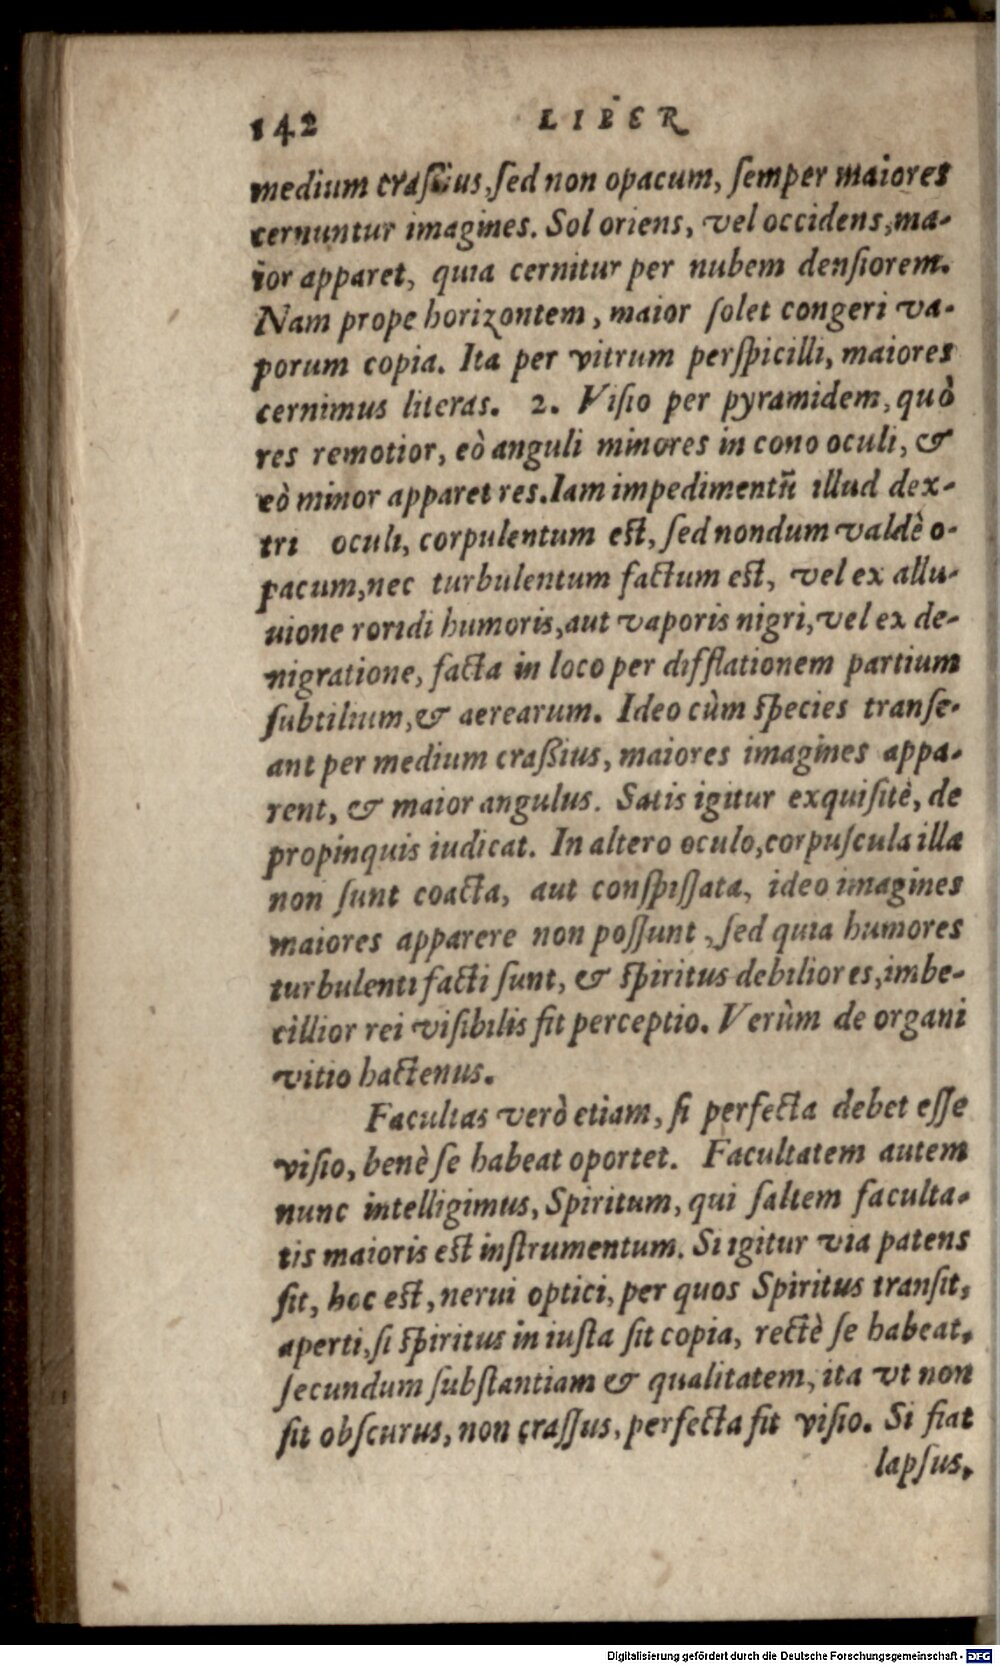 142 LIBER
medium craſsius, ſed non opacum, ſemper maiores
cernuntur imagines. Sol oriens, vel occidens, ma-
ior apparet, quia cernitur per nubem denſiorem.
Nam prope horizontem, maior ſolet congeri va-
porum copia. Ita per vitrum perſpicilli, maiores
cernimus literas. 2. Viſio per pyramidem, quò
res remotior, eò anguli minores in cono oculi, &
eò minor apparet res. Iam impedimentũ illud dex-
tri oculi, corpulentum eſt, ſed nondum valdè o-
pacum, nec turbulentum factum eſt, vel ex allu-
uione roridi humoris, aut vaporis nigri, vel ex de-
nigratione, facta in loco per difflationem partium
ſubtilium, & aerearum. Ideo cùm ſpecies tranſe-
ant per medium craßius, maiores imagines appa-
rent, & maior angulus. Satis igitur exquiſitè, de
propinquis iudicat. In altero oculo, corpuſcula illa
non ſunt coacta, aut conſpiſſata, ideo imagines
maiores apparere non poſſunt, ſed quia humores
turbulenti facti ſunt, & ſpiritus debiliores, imbe-
cillior rei viſibilis fit perceptio. Verùm de organi
vitio hactenus.
Facultas verò etiam, ſi perfecta debet eſſe
viſio, benè ſe habeat oportet. Facultatem autem
nunc intelligimus, Spiritum, qui ſaltem faculta-
tis maioris eſt inſtrumentum. Si igitur via patens
ſit, hoc eſt, nerui optici, per quos Spiritus tranſit,
aperti, ſi ſpiritus in iuſta ſit copia, rectè ſe habeat,
ſecundum ſubſtantiam & qualitatem, ita vt non
ſit obſcurus, non craſſus, perfecta fit viſio. Si fiat
lapſus,
Digitalisierung gefördert durch die Deutsche Forschungsgemeinschaft - DFG